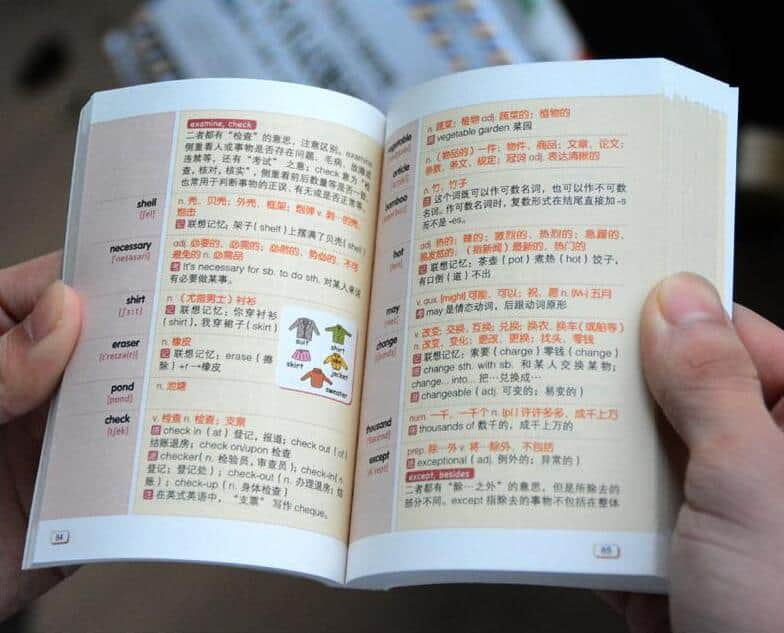 examine, check
二者都有“检查”的意思，注意区别。examine
侧重看人或事物是否存在问题、毛病、故障或
违禁等，还有“考试”之意；check 意为“检
查，核对，核实”，侧重看前后数量等是否一致，
也常用于判断事物的正误、有无或是否正常等。
shell
[ʃel]
n. 壳、贝壳；外壳、框架；炮弹 v. 剥…的壳、
炮击
记 联想记忆：架子（shelf）上摆满了贝壳(shell)
necessary
[ˈnesəsəri]
adj. 必要的、必需的；必然的、势必的、不可
避免的 n. 必需品
考 It's necessary for sb. to do sth. 对某人来说
有必要做某事。
shirt
[ʃɜːt]
n. （尤指男士）衬衫
记 联想记忆：你穿衬衫
（shirt），我穿裙子（skirt）
suit
shirt
skirt
jacket
sweater
eraser
[ɪˈreɪzə(r)]
n. 橡皮
记 联想记忆：erase（擦
除）+r→橡皮
pond
[pɒnd]
n. 池塘
check
[tʃek]
v. 检查 n. 检查；支票
搭 check in（at）登记，报道；check out（of）
结账退房；check on/upon 检查
派 checker(n. 检验员，审查员)；check-in(n.
登记；登记处)；check-out（n. 办理退房；结
账）；check-up（n. 身体检查）
注 在英式英语中，“支票”写作 cheque。
84
vegetable
n. 蔬菜；植物 adj. 蔬菜的；植物的
搭 vegetable garden 菜园
article
n. （物品的）一件；物件、商品；文章、论文；
条款、条文、规定；冠词 adj. 表达清晰的
bamboo
n. 竹，竹子
考 这个词既可以作可数名词，也可以作不可数
名词。作可数名词时，复数形式在结尾直接加 -s
而不是 -es。
hot
adj. 热的；辣的；激烈的、热烈的；急躁的、
易发怒的；（指新闻）最新的、热门的
记 联想记忆：茶壶（pot）煮热（hot）饺子，
有口倒（道）不出
may
v. aux. [might] 可能、可以；祝、愿 n. (M-) 五月
考 may 是情态动词，后跟动词原形
change
v. 改变；交换、互换；兑换；换衣、换车（或船等）
n. 改变、变化；更改、更换；找头、零钱
记 联想记忆：索要（charge）零钱（change）
搭 change sth. with sb. 和某人交换某物；
change… into… 把…兑换成…
派 changeable（adj. 可变的；易变的）
thousand
num. 一千，一千个 n. [pl.] 许许多多、成千上万
搭 thousands of 数千的，成千上万的
except
prep. 除…外 v. 将…除外、不包括
派 exceptional（adj. 例外的；异常的）
except, besides
二者都有“除…之外”的意思，但是所除去的
部分不同。except 指除去的事物不包括在整体
85